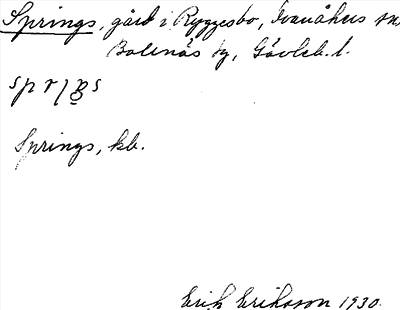 Springs, gård i Ryggesbo, Svanåhus sn,
Bollnäs tg, Gävleb. l.
Springs, kb.
Erik Eriksson 1930.